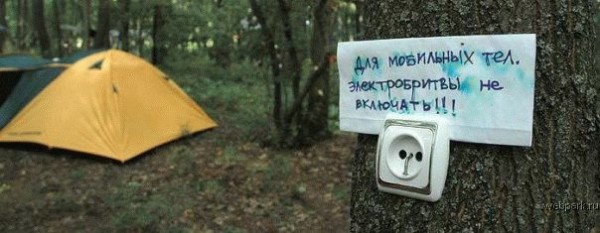 для мобильных тел.
электробритвы не
включать!!!
webpark.ru